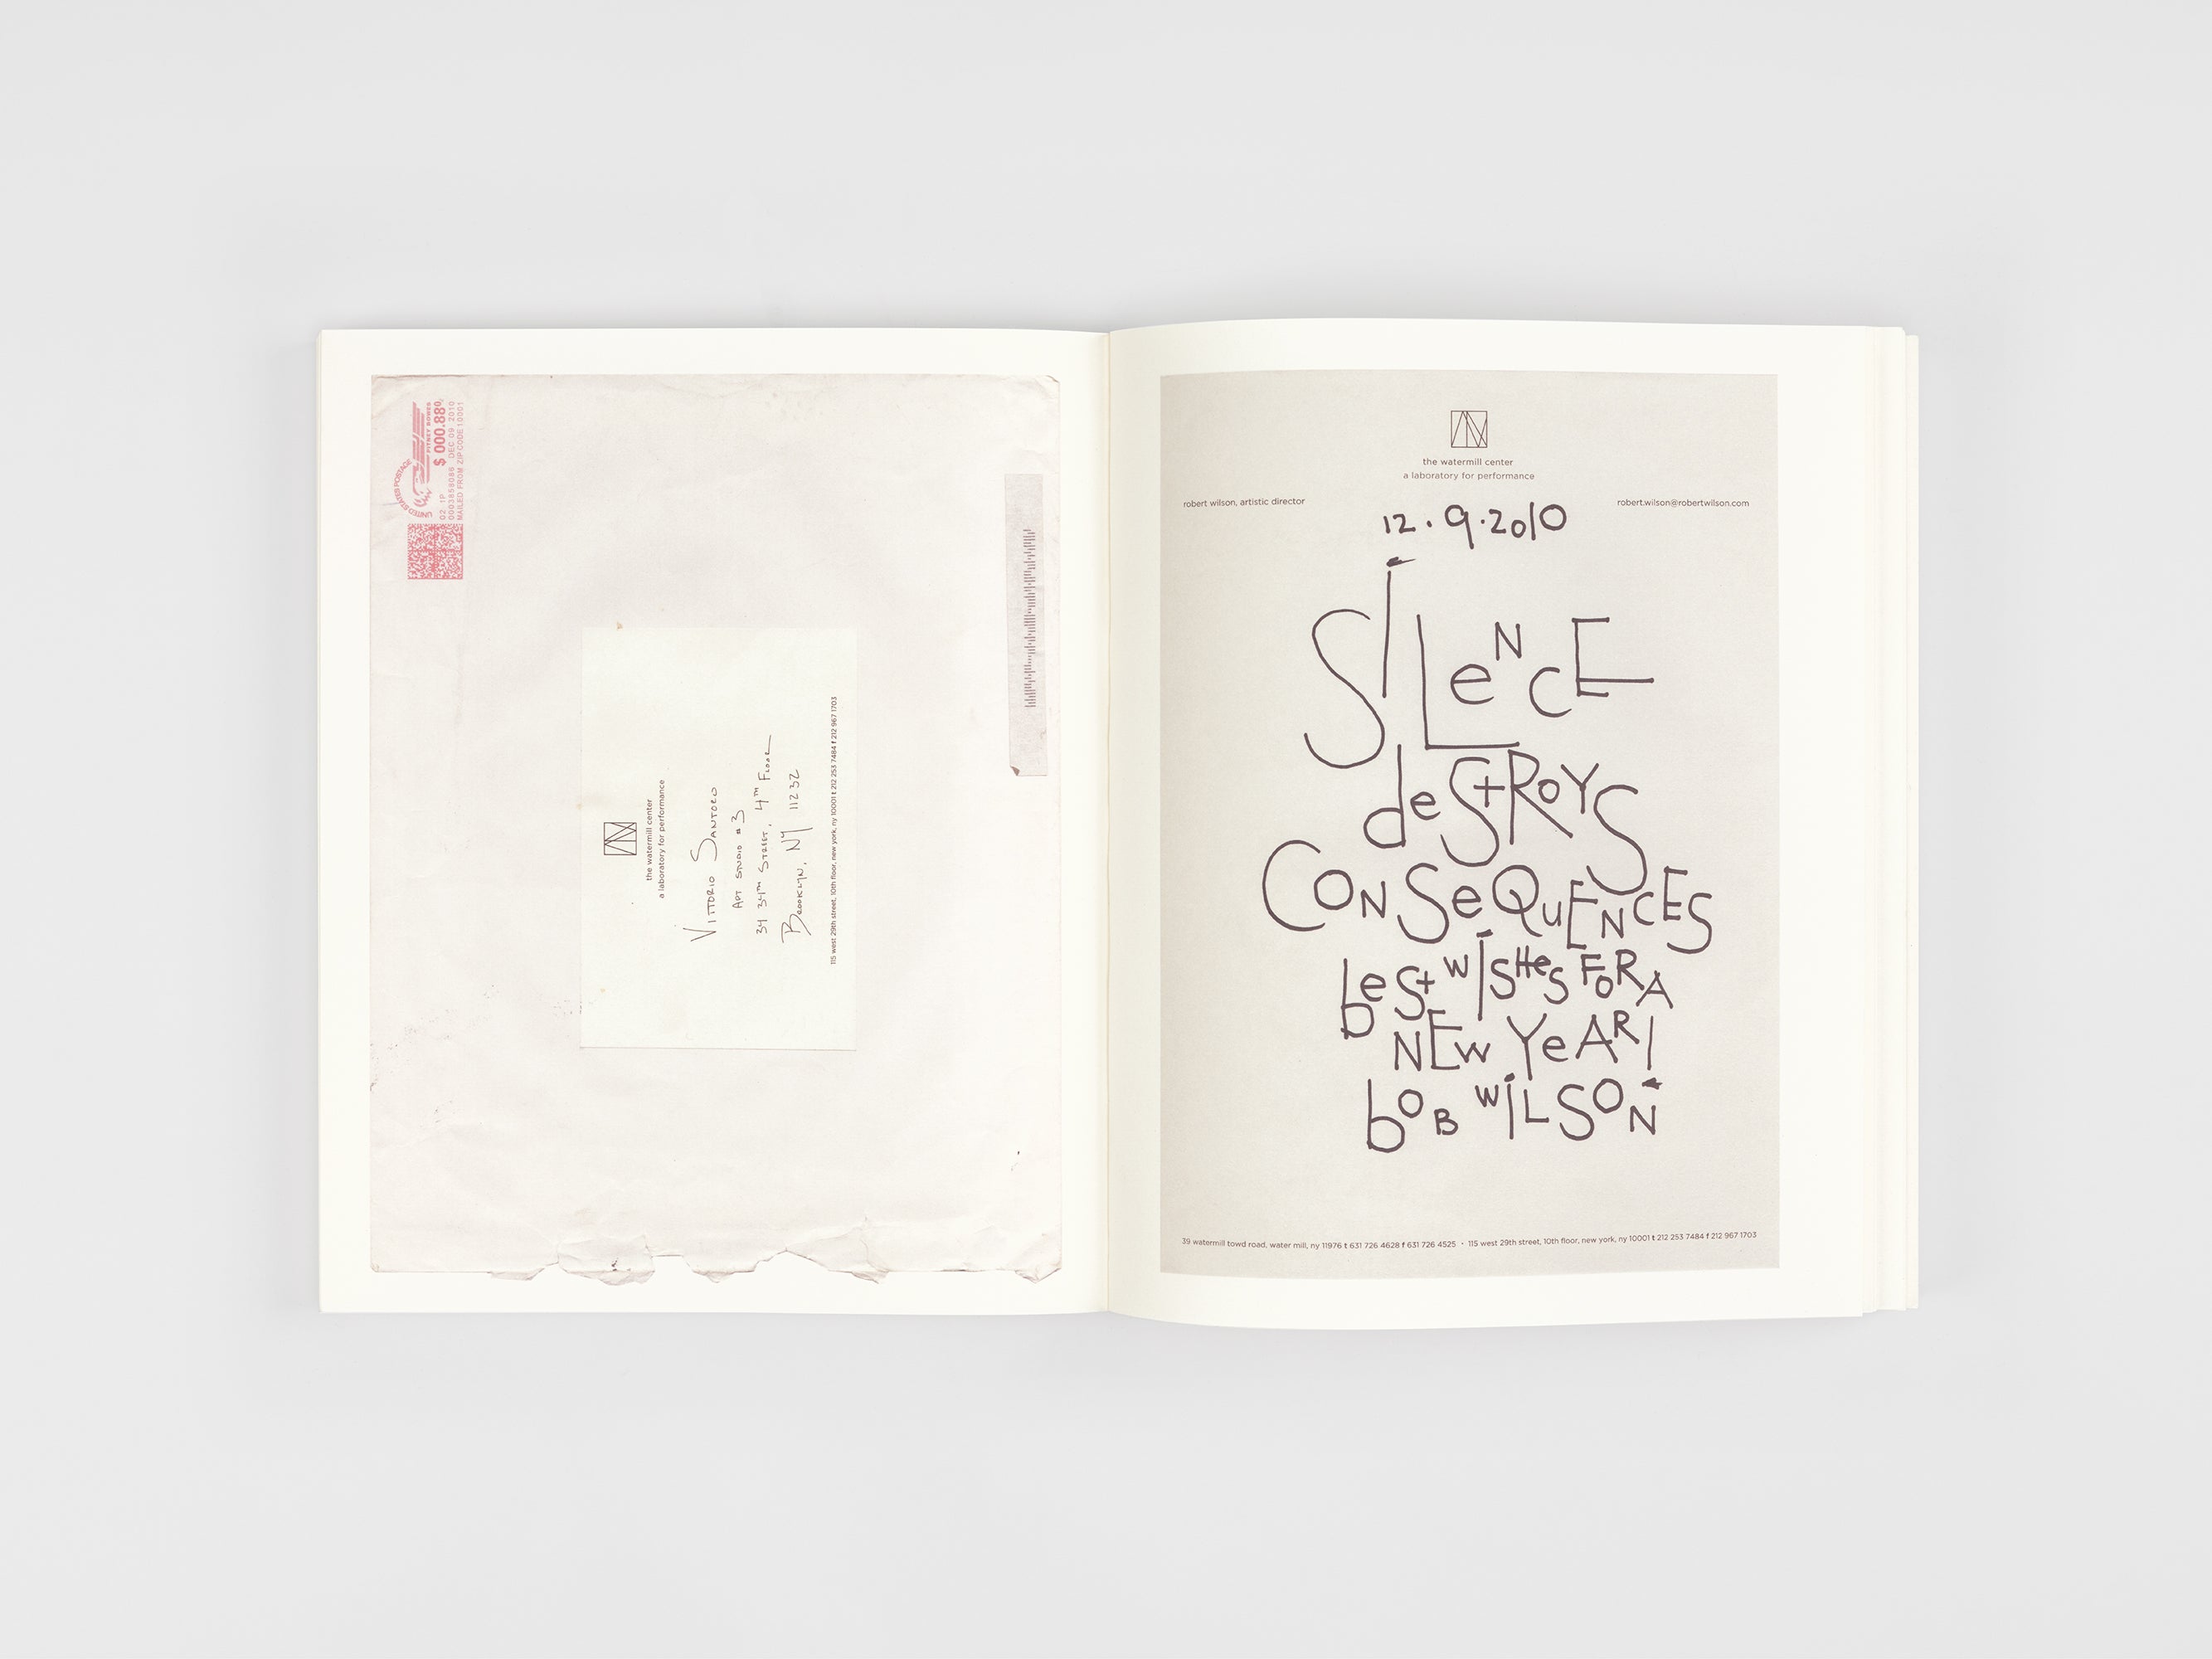 UNITED STATES POSTAGE
PITNEY BOWES
02 1P
$ 000.88⁰
0003858088 DEC 09 2010
MAILED FROM ZIP CODE 10001
the watermill center
a laboratory for performance
VITTORIO SANTORO
APT STUDIO #3
34 34TH STREET, 4TH FLOOR
BROOKLYN, NY 11232
115 west 29th street, 10th floor, new york, ny 10001 t 212 253 7484 f 212 967 1703
the watermill center
a laboratory for performance
robert wilson, artistic director
robert.wilson@robertwilson.com
12.9.2010
SiLeNCE
deStRoYS
CONSeQuENCES
beSt wiSHeS FoR A
NEw YeAR!
boB wiLSON
39 watermill towd road, water mill, ny 11976 t 631 726 4628 f 631 726 4525 • 115 west 29th street, 10th floor, new york, ny 10001 t 212 253 7484 f 212 967 1703